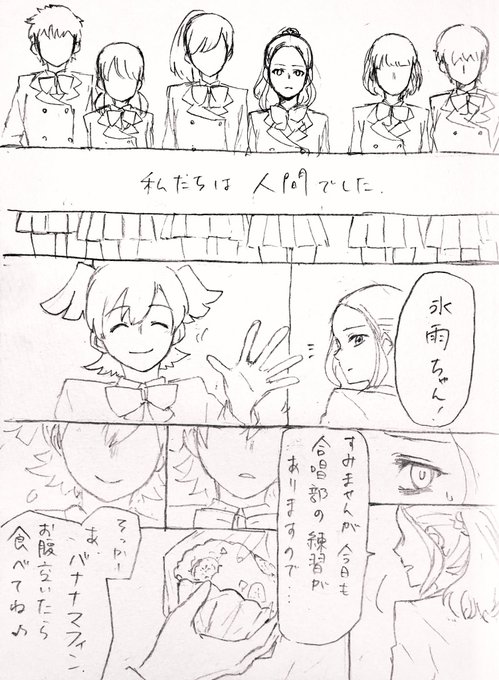 私たちは 人間でした.
氷雨ちゃん!
すみませんが 今日も
合唱部の練習が
ありますので…
そっかー
あ、バナナマフィン
お腹空いたら
食べてね♪